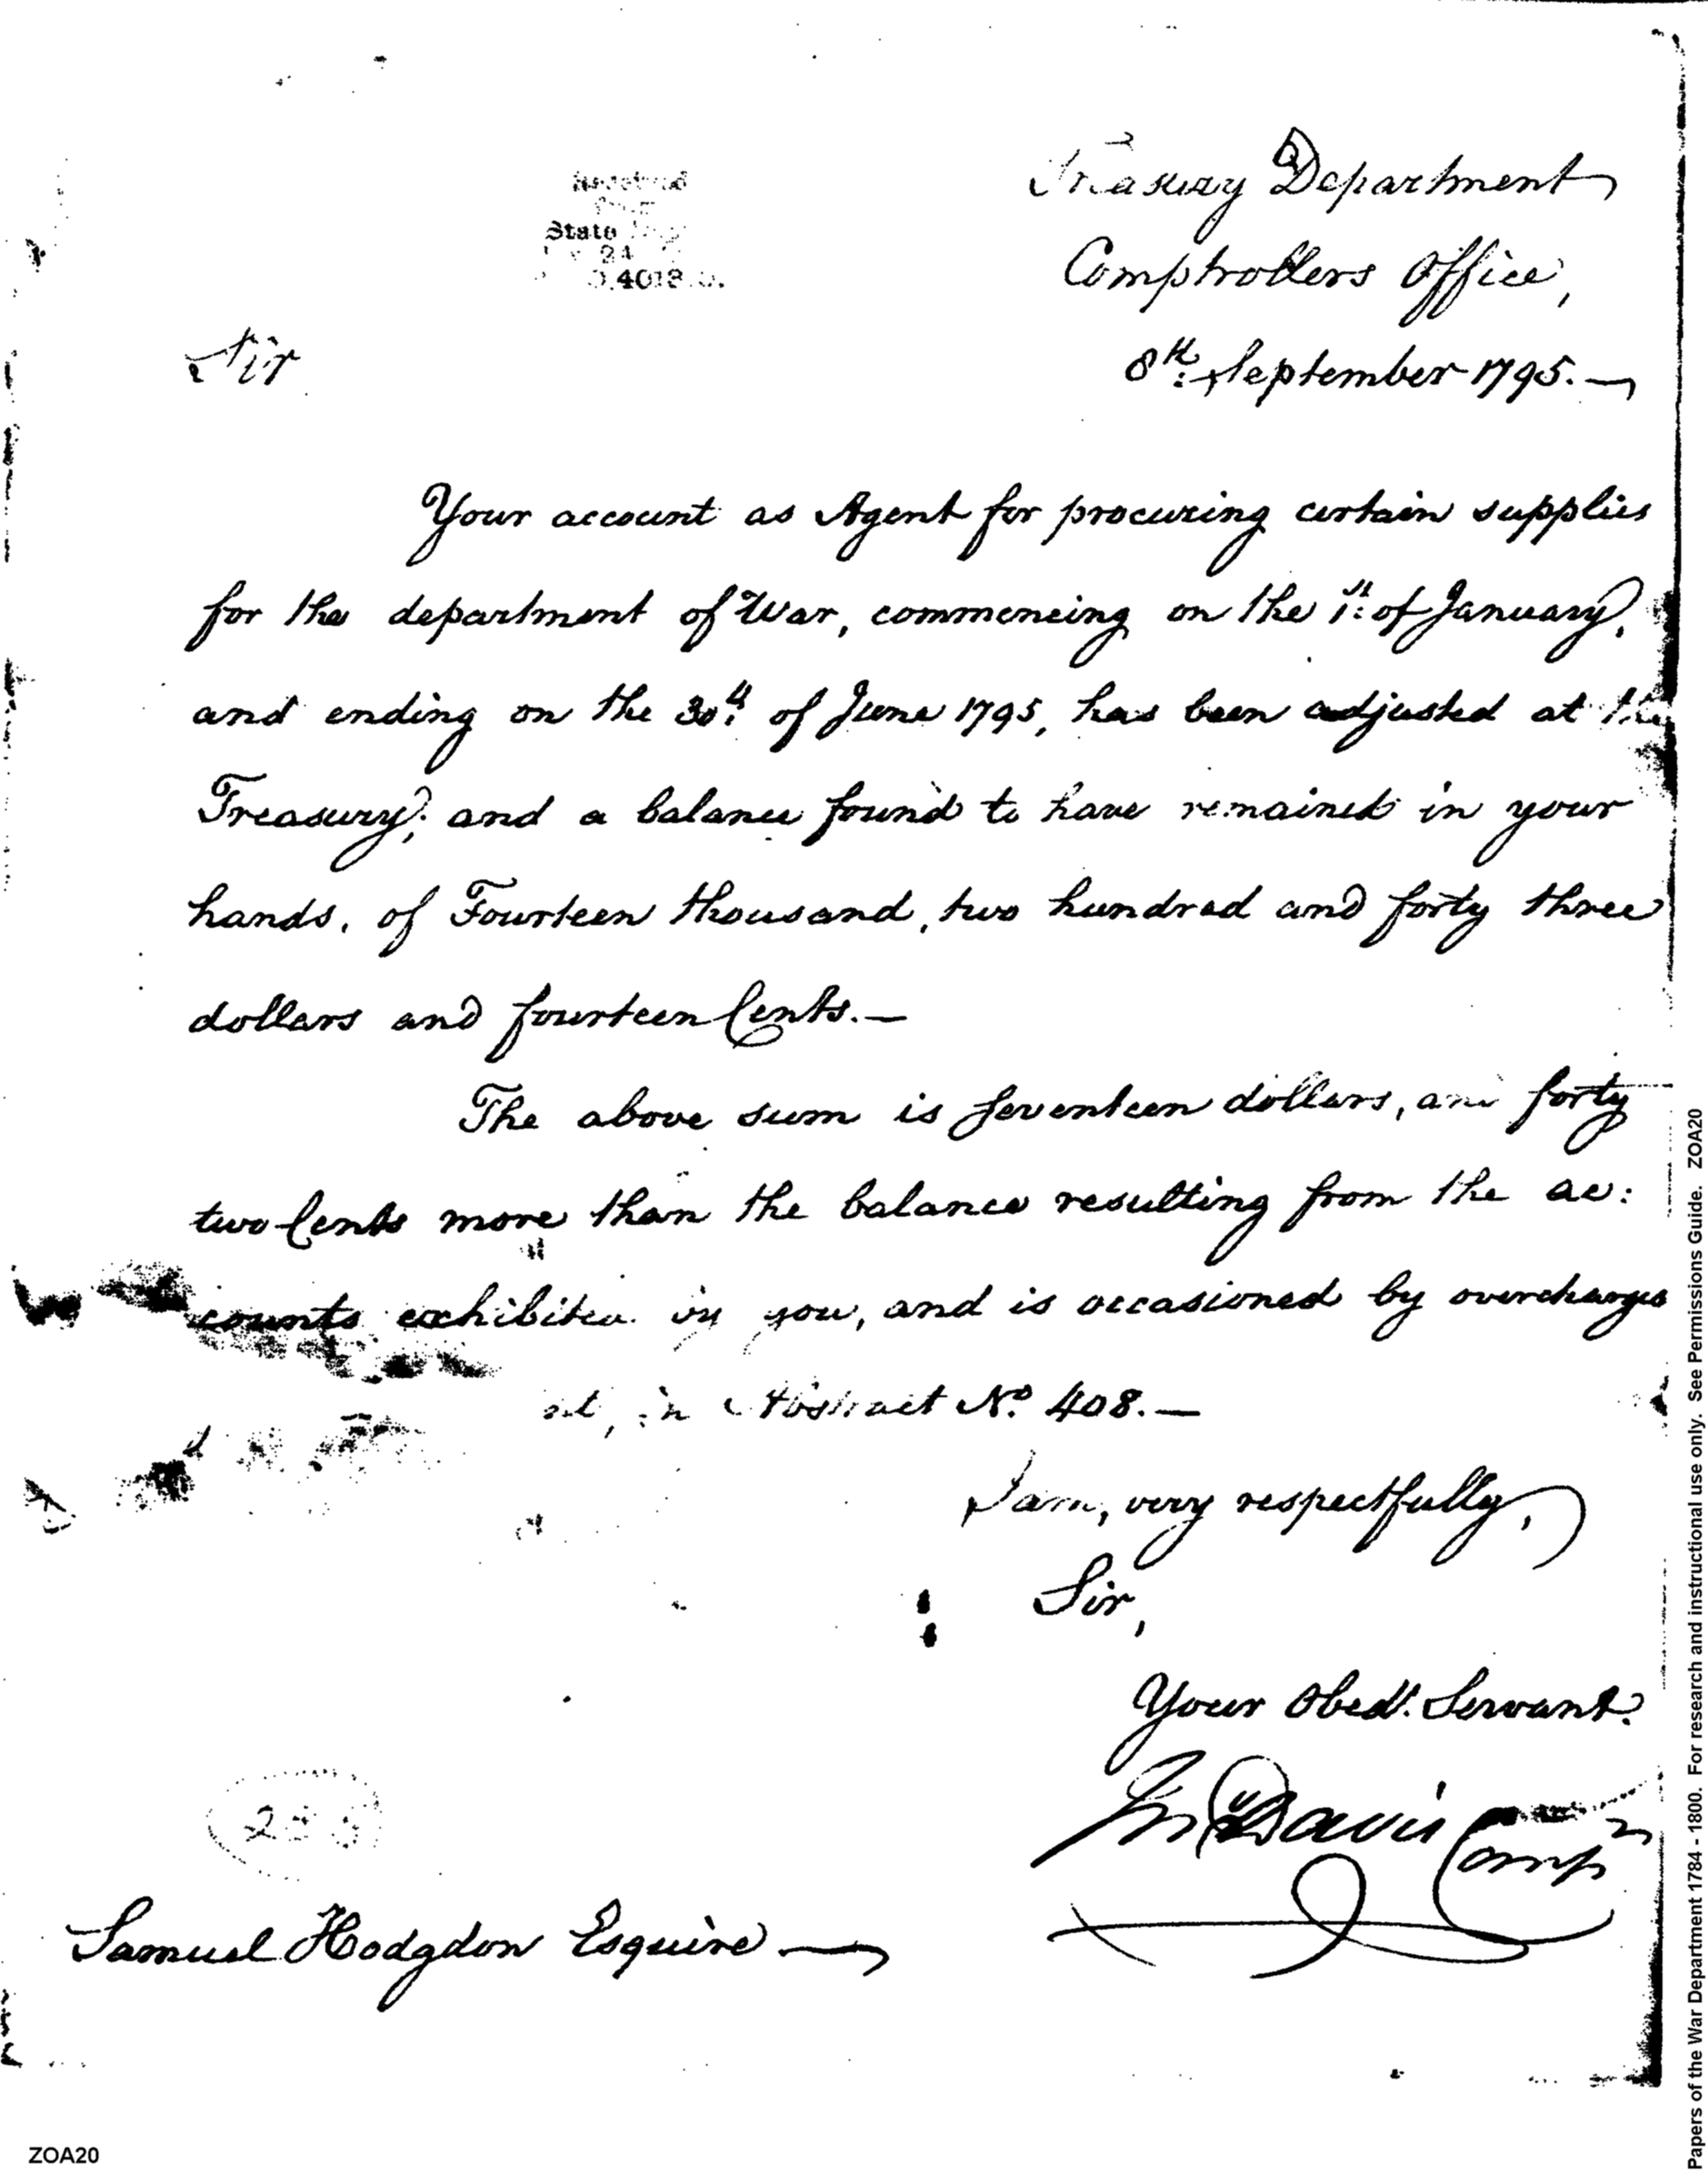 Treasury Department
Comptrollers Office,
State
4018
Sir
8th: September 1795.—
Your account as Agent for procuring certain supplies
for the department of War, commencing on the 1st: of January,
and ending on the 30th: of June 1795, has been adjusted at the
Treasury; and a balance found to have remained in your
hands, of Fourteen thousand, two hundred and forty three
dollars and fourteen Cents.—
The above sum is seventeen dollars, and forty
two Cents more than the balance resulting from the ac:
counts exhibited by you, and is occasioned by overcharges
in Abstract No. 408.—
I am, very respectfully,
Sir,
Your Obedt. Servant.
Jn Davis Comp
Samuel Hodgdon Esquire —
ZOA20
Papers of the War Department 1784 - 1800. For research and instructional use only. See Permissions Guide. ZOA20